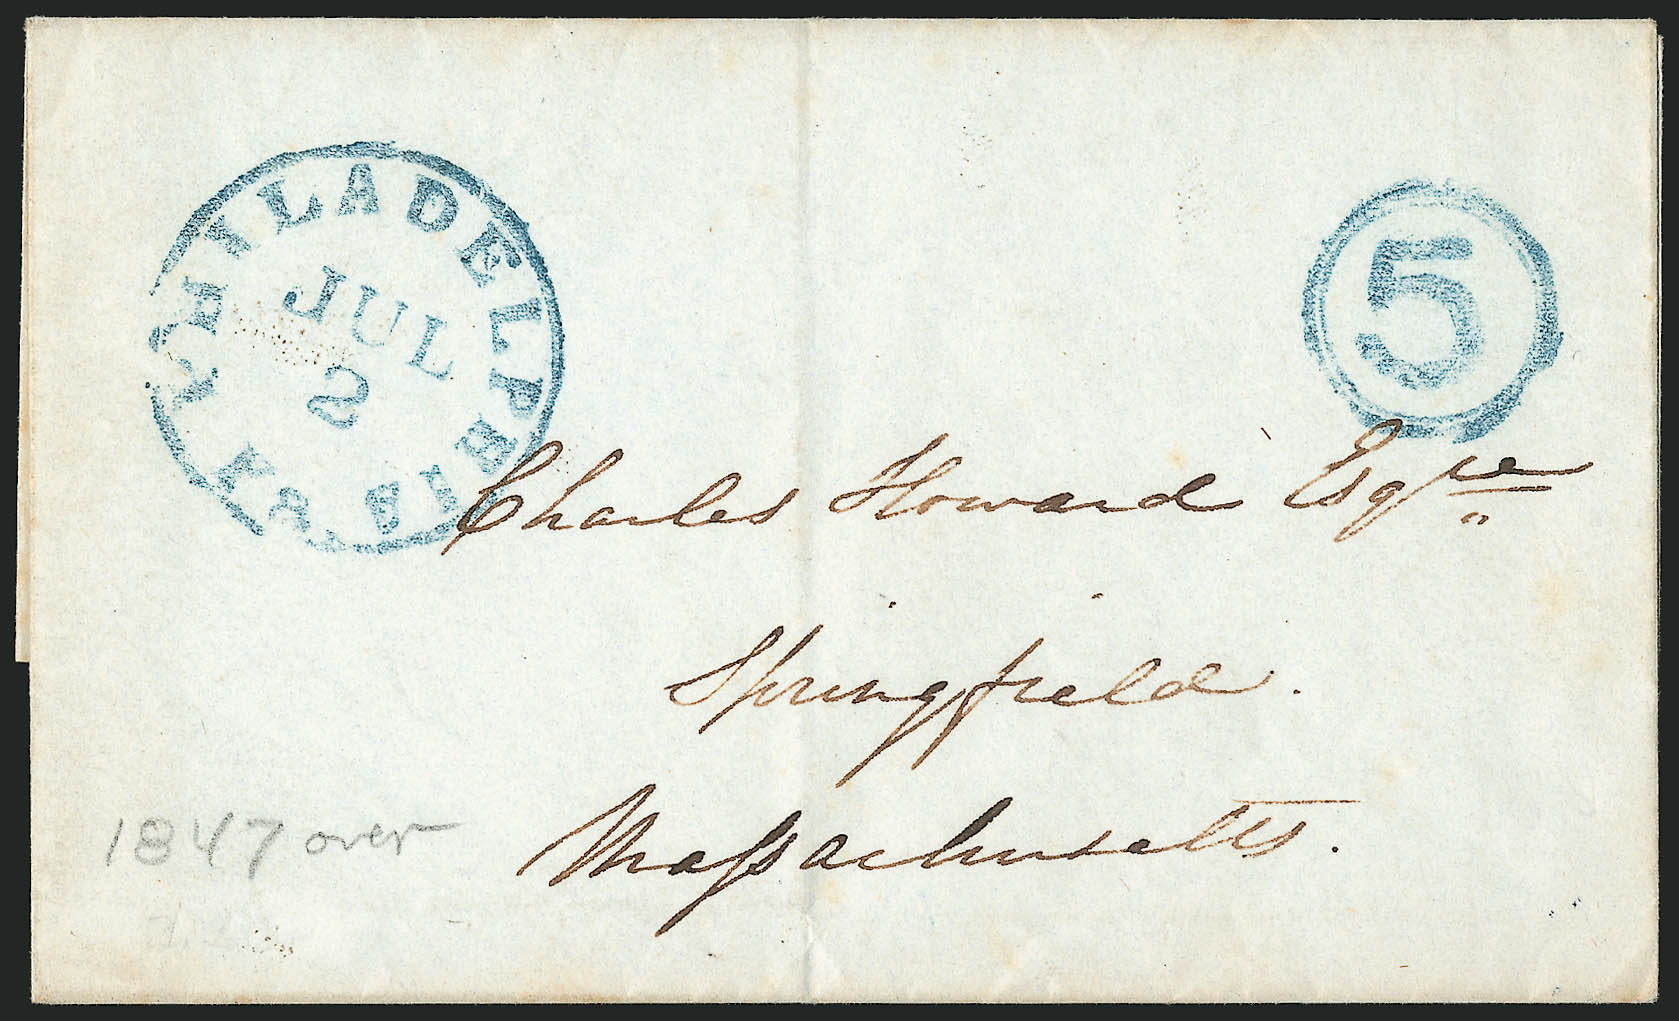 PHILADELPHIA Pa.
JUL
2
5
Charles Howard Esqre
Springfield.
Massachusetts.
1847 over